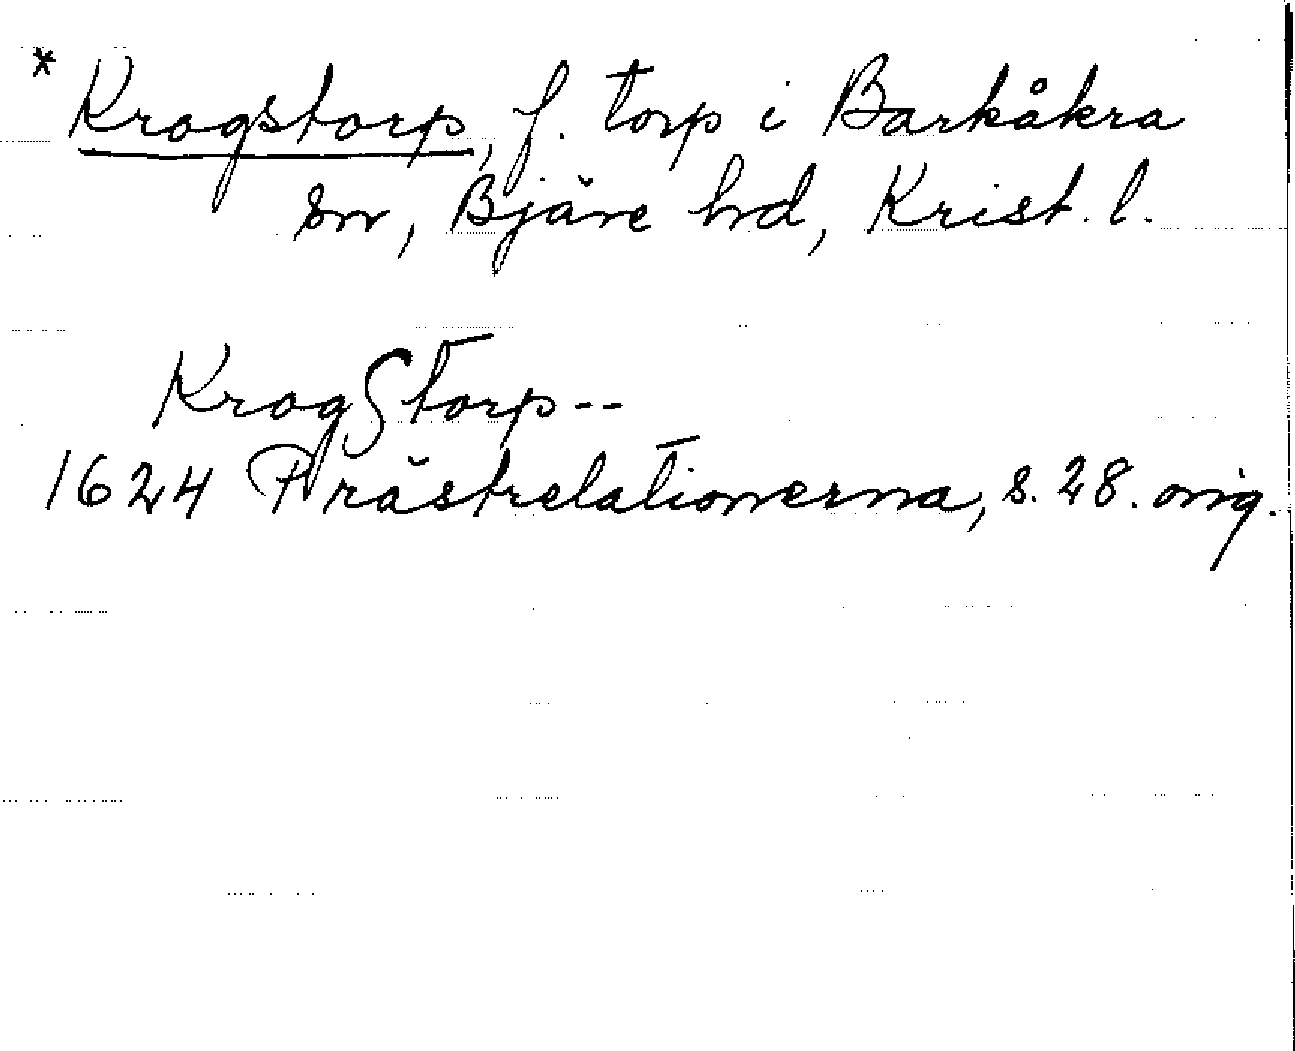 * Krogstorp, f. torp i Barkåkra
sn, Bjäre hd, Krist. l.
KrogStorp--
1624 Prästrelationerna, s. 28. orig.